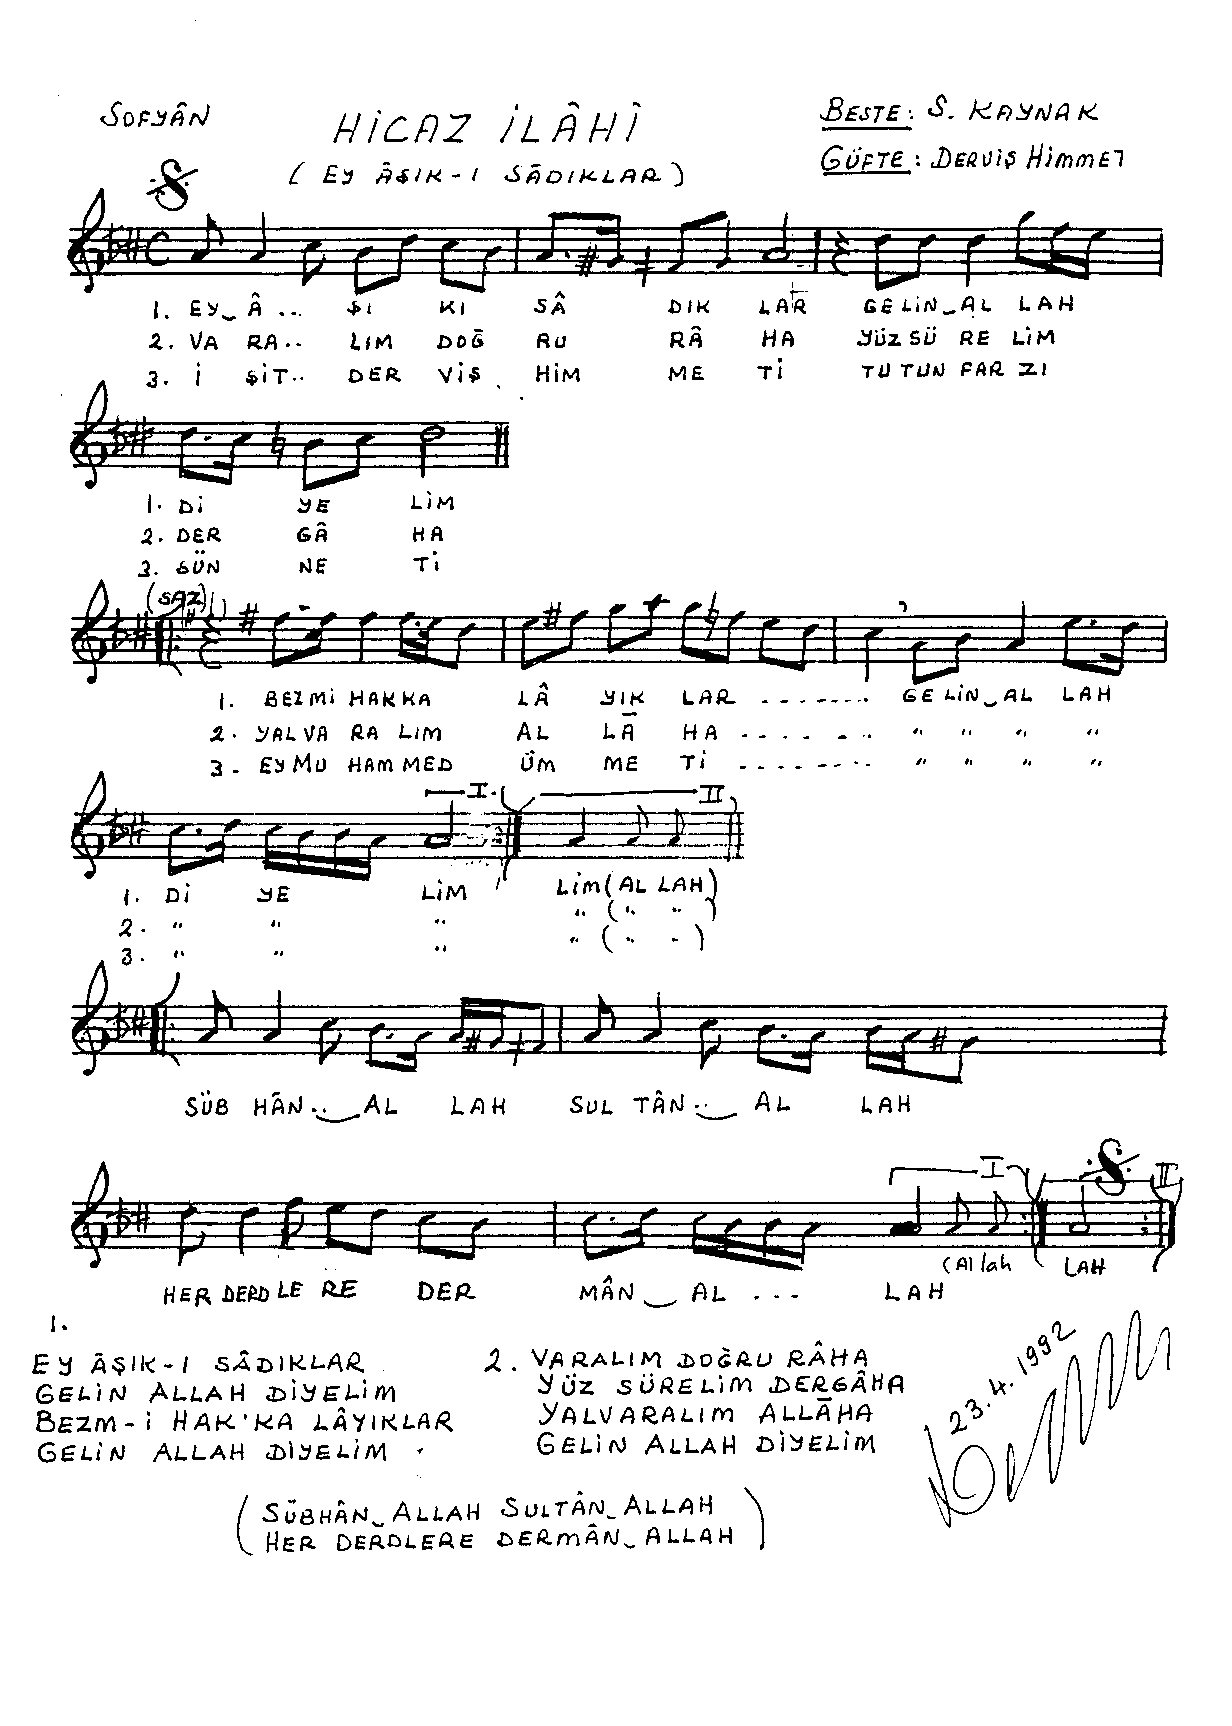 SOFYÂN
HİCAZ İLÂHİ
(EY ÂŞIK-I SÂDIKLAR)
BESTE: S. KAYNAK
GÜFTE: DERVİŞ HİMMET
1. EY_Â .. ŞI KI SÂ DIK LAR GELİN_AL LAH
2. VA RA.. LIM DOĞ RU RÂ HA YÜZ SÜ RE LİM
3. İ ŞİT.. DER VİŞ HİM ME Tİ TUTUN FAR ZI
1. Dİ YE LİM
2. DER GÂ HA
3. SÜN NE Tİ
(SAZ)
1. BEZMİ HAKKA LÂ YIK LAR ........ GELİN_AL LAH
2. YALVA RA LIM AL LÂ HA ........ " " " "
3. EYMU HAMMED ÜM ME Tİ ........ " " " "
I II
1. Dİ YE LİM LİM (AL LAH)
2. " " " " (" ")
3. " " " " (" ")
SÜB HÂN.._AL LAH SUL TÂN.._AL LAH
I II
HER DERD LE RE DER MÂN_AL ... LAH (Allah LAH
1.
EY ÂŞIK-I SÂDIKLAR
GELİN ALLAH DİYELİM
BEZM-İ HAK'KA LÂYIKLAR
GELİN ALLAH DİYELİM
2. VARALIM DOĞRU RÂHA
YÜZ SÜRELİM DERGÂHA
YALVARALIM ALLÂHA
GELİN ALLAH DİYELİM
23.4.1992
(SÜBHÂN_ALLAH SULTÂN_ALLAH
HER DERDLERE DERMÂN_ALLAH)